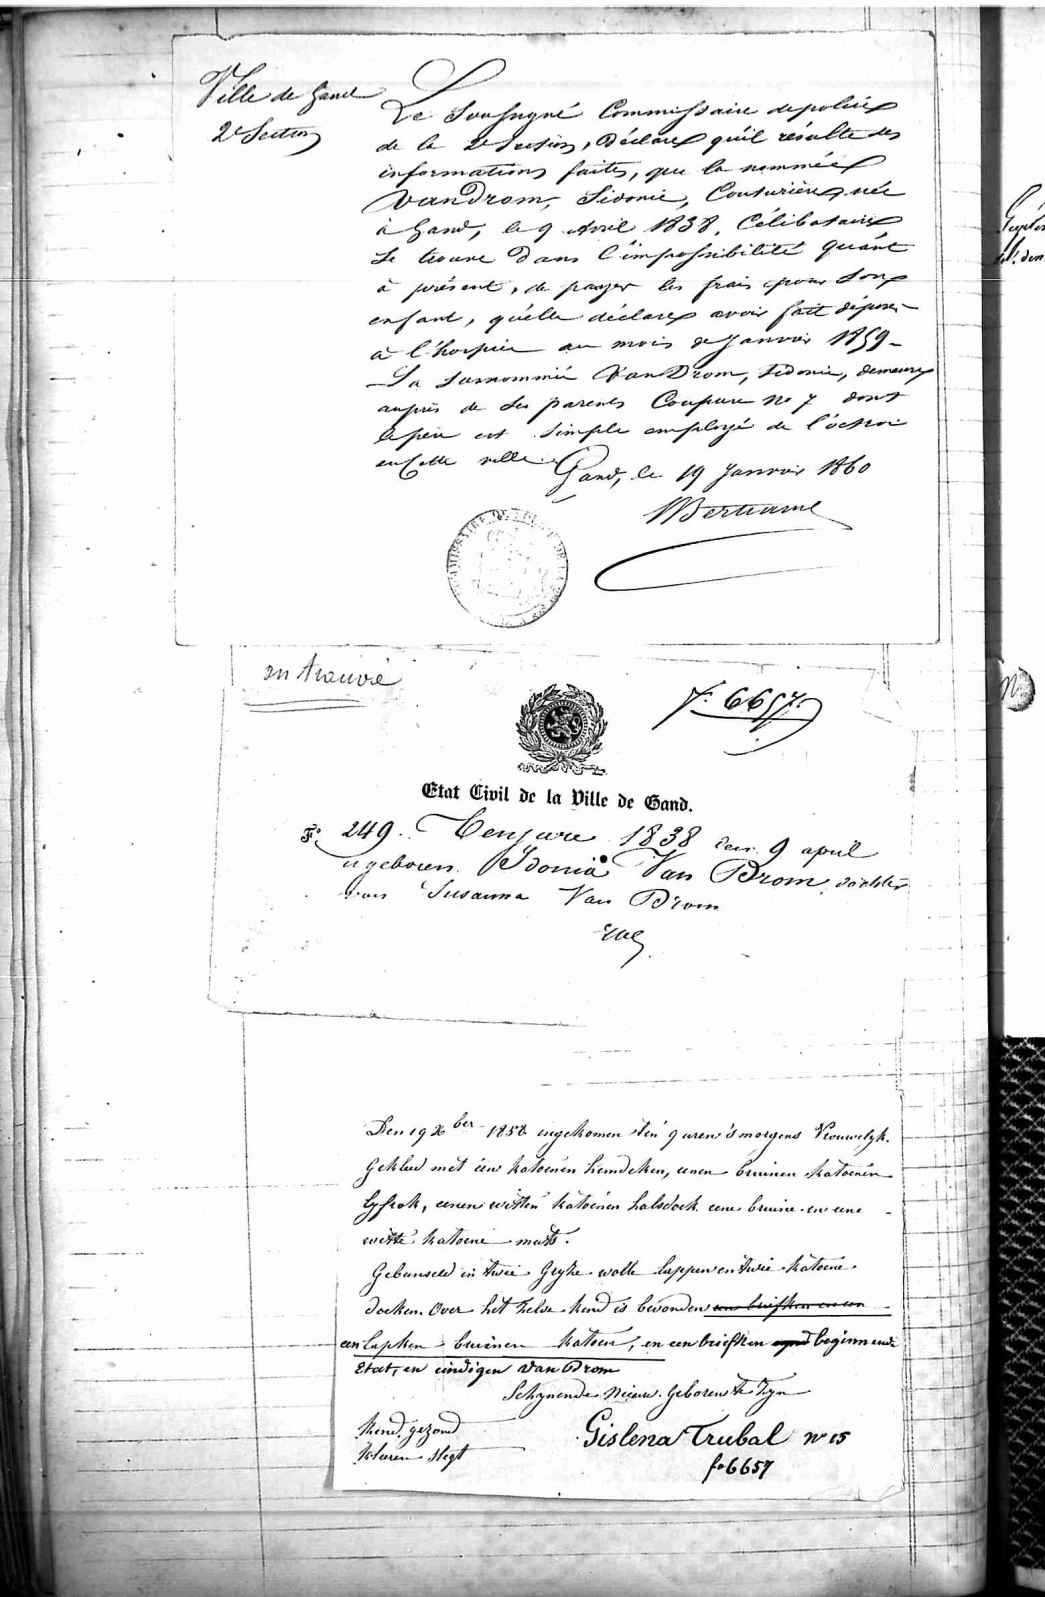 Ville de Gand
2e Section
Le Soussigné Commissaire de police
de la 2e Section, Déclare qu'il résulte des
informations faites, que la nommée
VanDrom, Sidonie, Couturière, née
à Gand, le 9 Avril 1838, Célibataire
se trouve dans l'impossibilité quant
à présent, de payer les frais pour son
enfant, qu'elle déclare avoir fait déposer
à l'hospice au mois de Janvier 1859-
-La surnommée VanDrom, Sidonie, demeure
auprès de ses parents Coupure no 7 dont
le père est simple employé de l'octroi
en Cette ville.
Gand, le 19 Janvier 1860
en trouvé
f° 6657
Etat Civil de la Ville de Gand.
F° 249. 1838 den 9 april
geboren Van Drom, dochter
van Susanna Van Drom
Den 19 Xber 1858 ingekomen ten 9 uren 's morgens Vrouwelyk.
Gekleed met een katoenen hemdeken, eenen bruinen katoenen
lyfrok, eenen witten katoenen halsdoek eene bruine en eene
witte katoene muts.
Gebunseld in twee Gryze wolle lappen en twee katoene
doeken. Over het zelve kind is bevonden een briefken en een
een lapken bruinen katoen, en een briefken beginnende
Etat, en eindigen van Drom
Schynende Nieuw Geboren te Zyn
Kend gezond
Kleeren slegt
Gislena Trubal n° 15
fo 6657